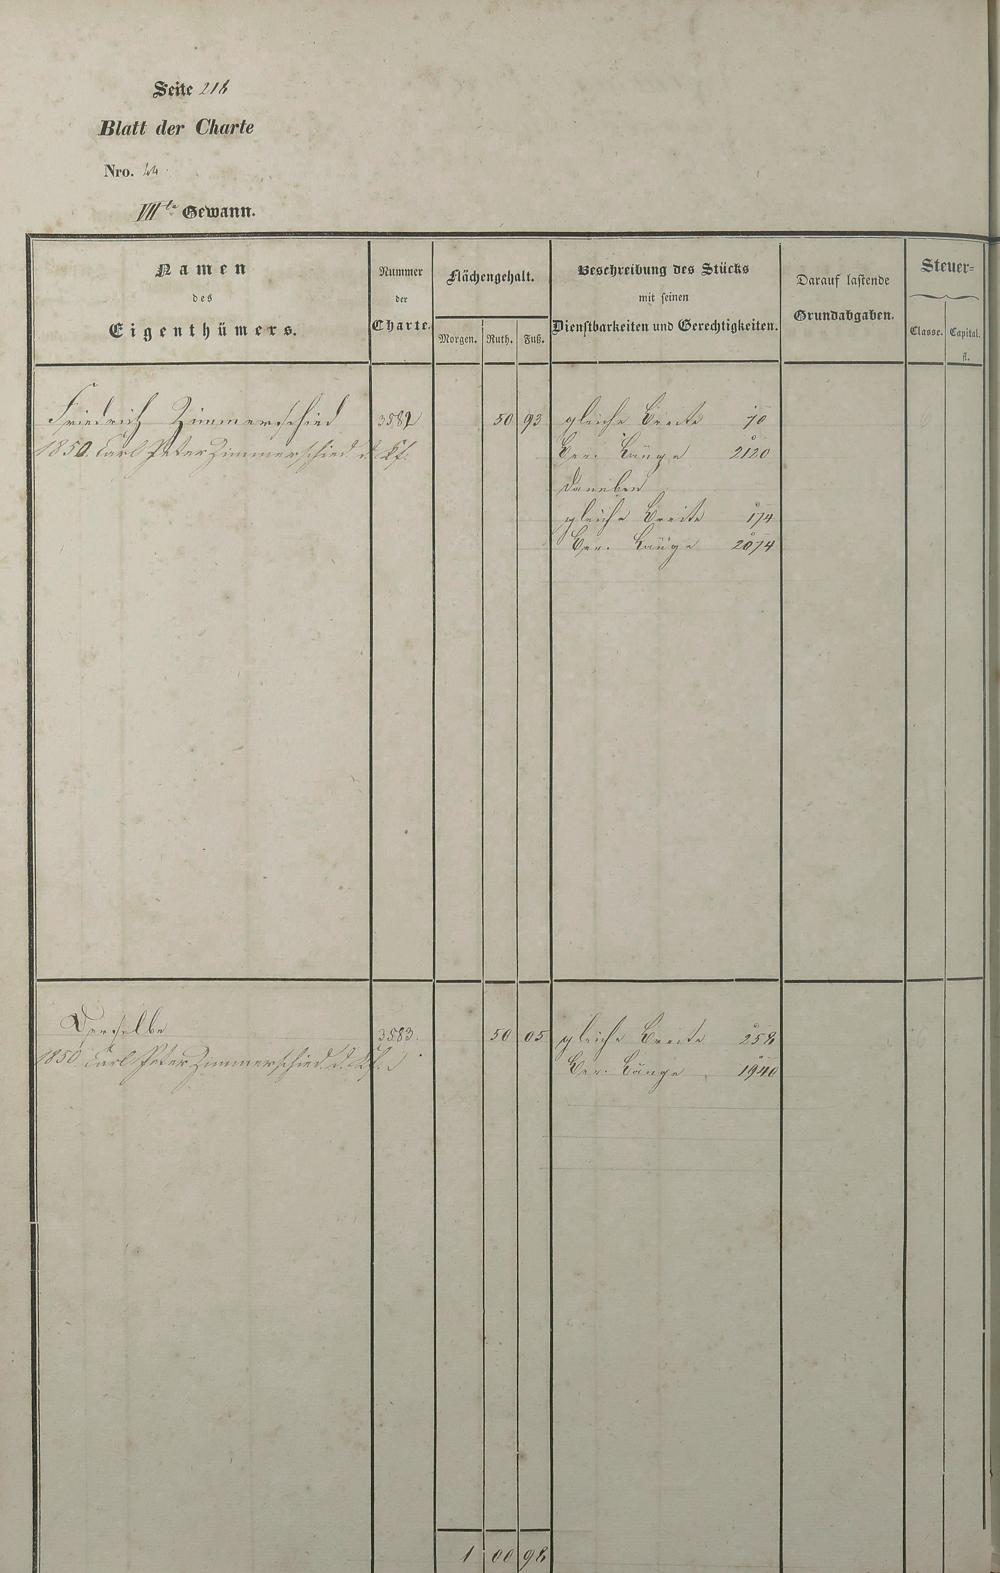 Seite 218
Blatt der Charte
Nro. 44
VIIte Gewann.
Namen des Eigenthümers.
Nummer der Charte.
Flächengehalt.
Morgen. Ruth. Fuß.
Beschreibung des Stücks mit seinen Dienstbarkeiten und Gerechtigkeiten.
Darauf lastende Grundabgaben.
Steuer-
Classe. Capital. fl.
Friedrich Zimmerschied 3582 50 93 gleiche Breite 70
1850. Carl Peter Zimmerschied d. Kf. Ber. Länge 2120
daneben
gleiche Breite 174
Ber. Länge 2074
Derselbe 3583. 50 05 gleiche Breite 258
1850 Carl Peter Zimmerschied d. Kf. Ber. Länge 1940
1 00 98